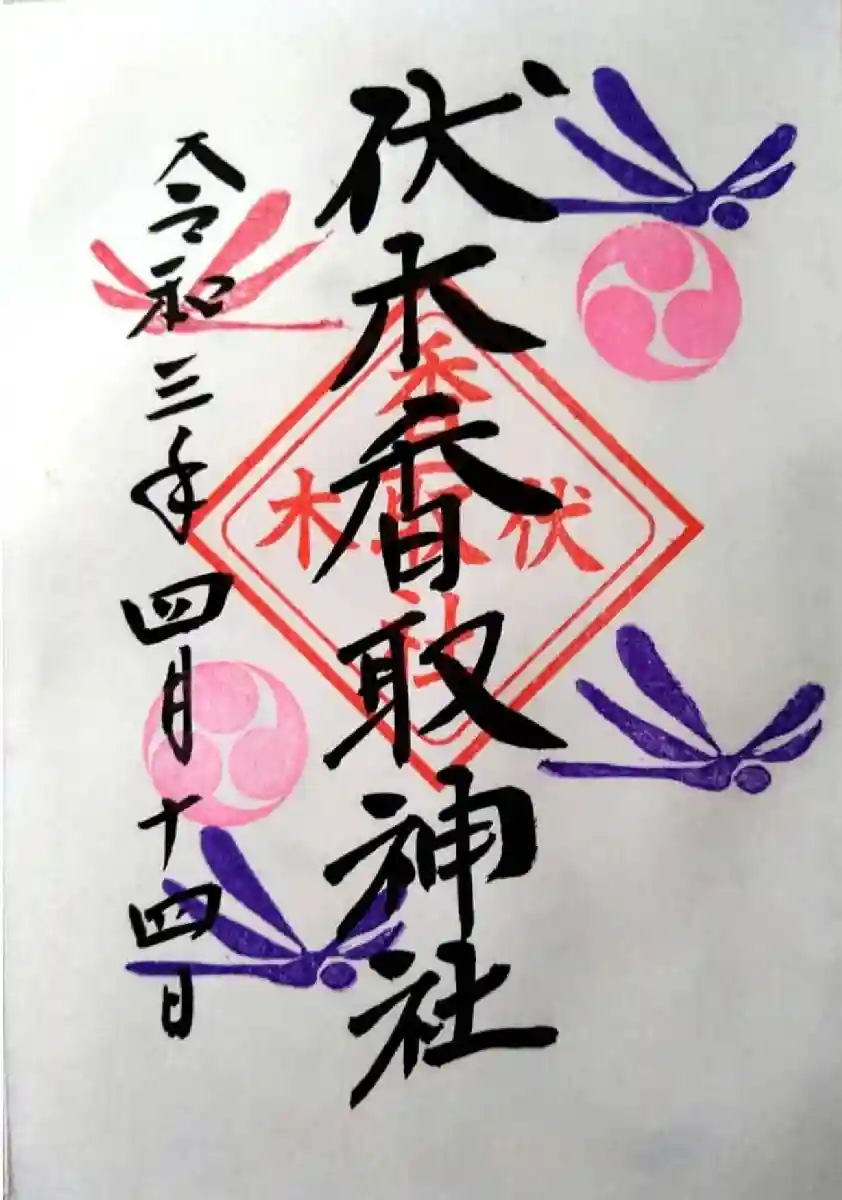 伏木香取神社
令和三年四月十四日
香
伏取木
社